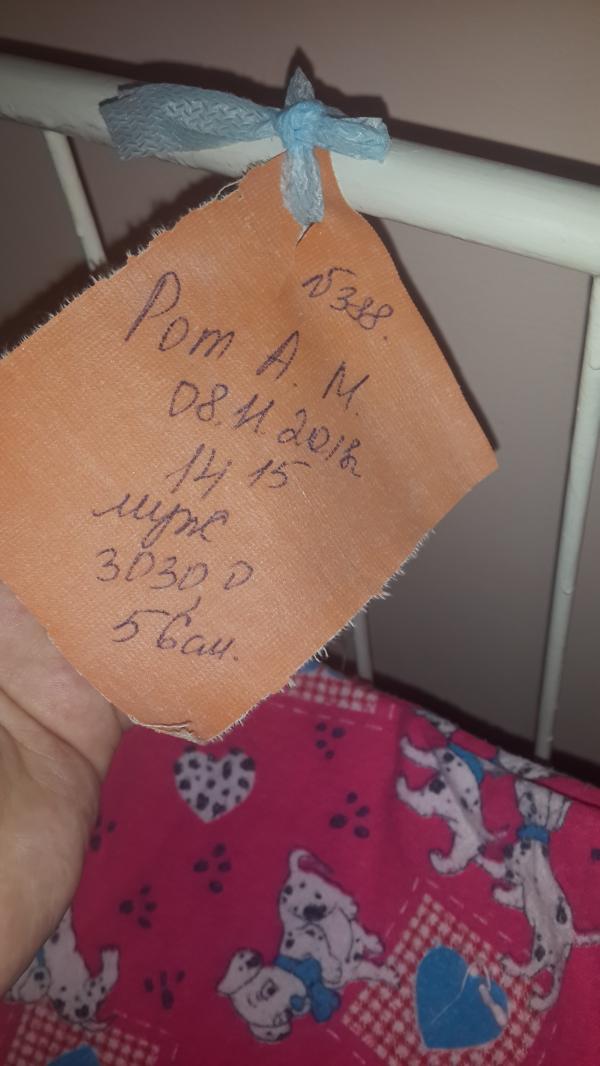 № 388.
Рот А. М.
08.11.2018г
14 15
муж
3030,0
56см.